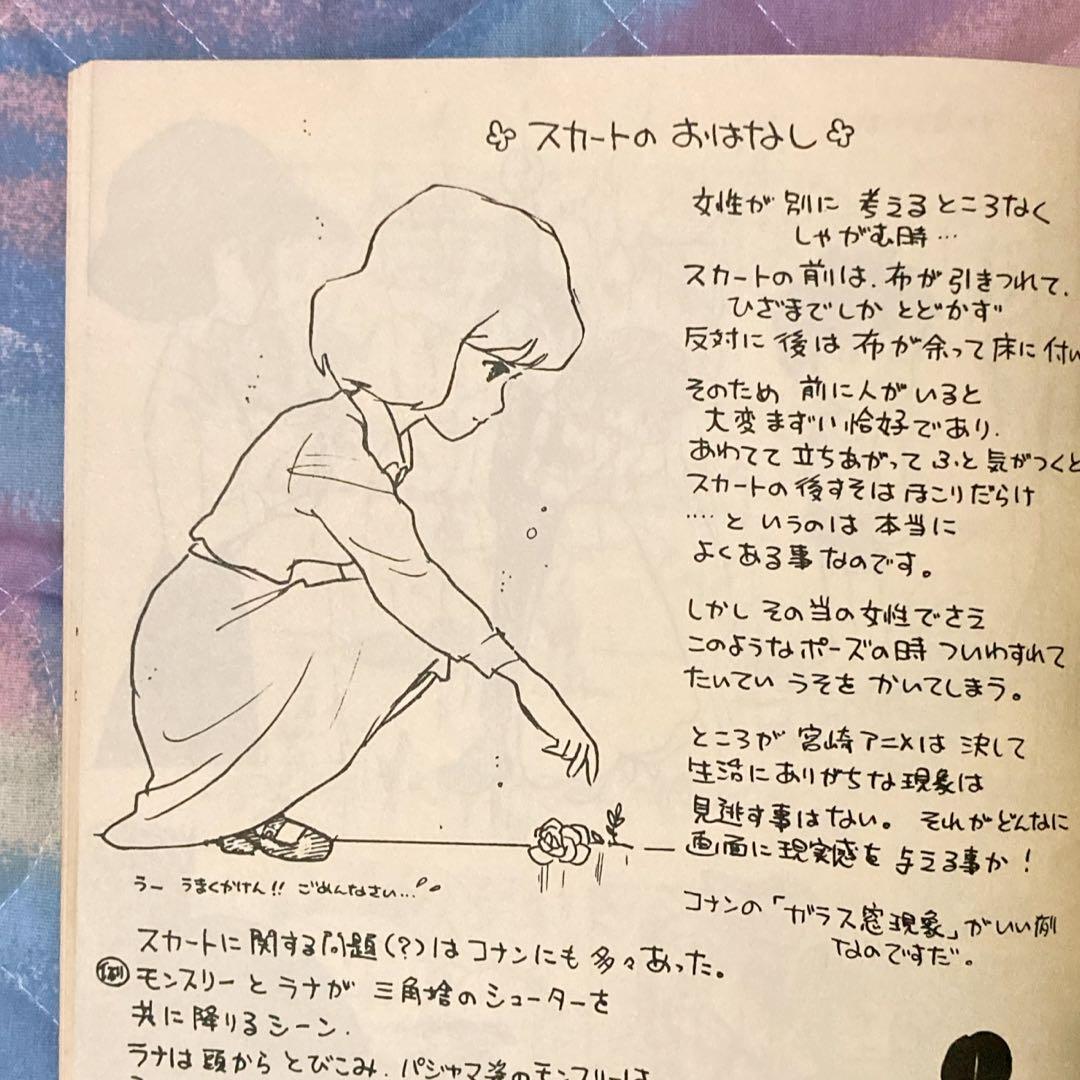 スカートの おはなし
女性が 別に 考えるところなく
しゃがむ時…
スカートの前は、布が引きつれて、
ひざまでしか とどかず
反対に 後は 布が余って床に付い
そのため 前に人がいると
大変まずい恰好であり、
あわてて立ちあがって ふと気がつくと
スカートの後すそは ほこりだらけ
…‥と いうのは 本当に
よくある事なのです。
しかし その当の女性でさえ
このようなポーズの時 ついわすれて
たいてい うそを かいてしまう。
ところが 宮崎アニメは 決して
生活にありがちな現象は
見逃す事はない。 それがどんなに
画面に現実感を 与える事か!
コナンの「ガラス窓現象」がいい例
なのですだ。
うー うまくかけん!! ごめんなさい…
スカートに関する問題(?)はコナンにも多々あった。
例 モンスリーとラナが 三角塔のシューターを
共に降りるシーン.
ラナは頭から とびこみ、パジャマ姿のモンスリーは